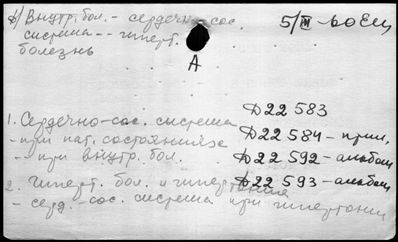 Внутр. бол. - сердечно-сос. 5/III-воен
система -- гиперт.
болезнь
А
Д22 583
1. Сердечно-сос. система Д22 584 - прил,
- при пат. состояниях Д22 592 - альбом
- при внутр. бол. Д22 593 - альбом
2. Гиперт. бол. и гипертония
- серд. - сос. система при гипертонии